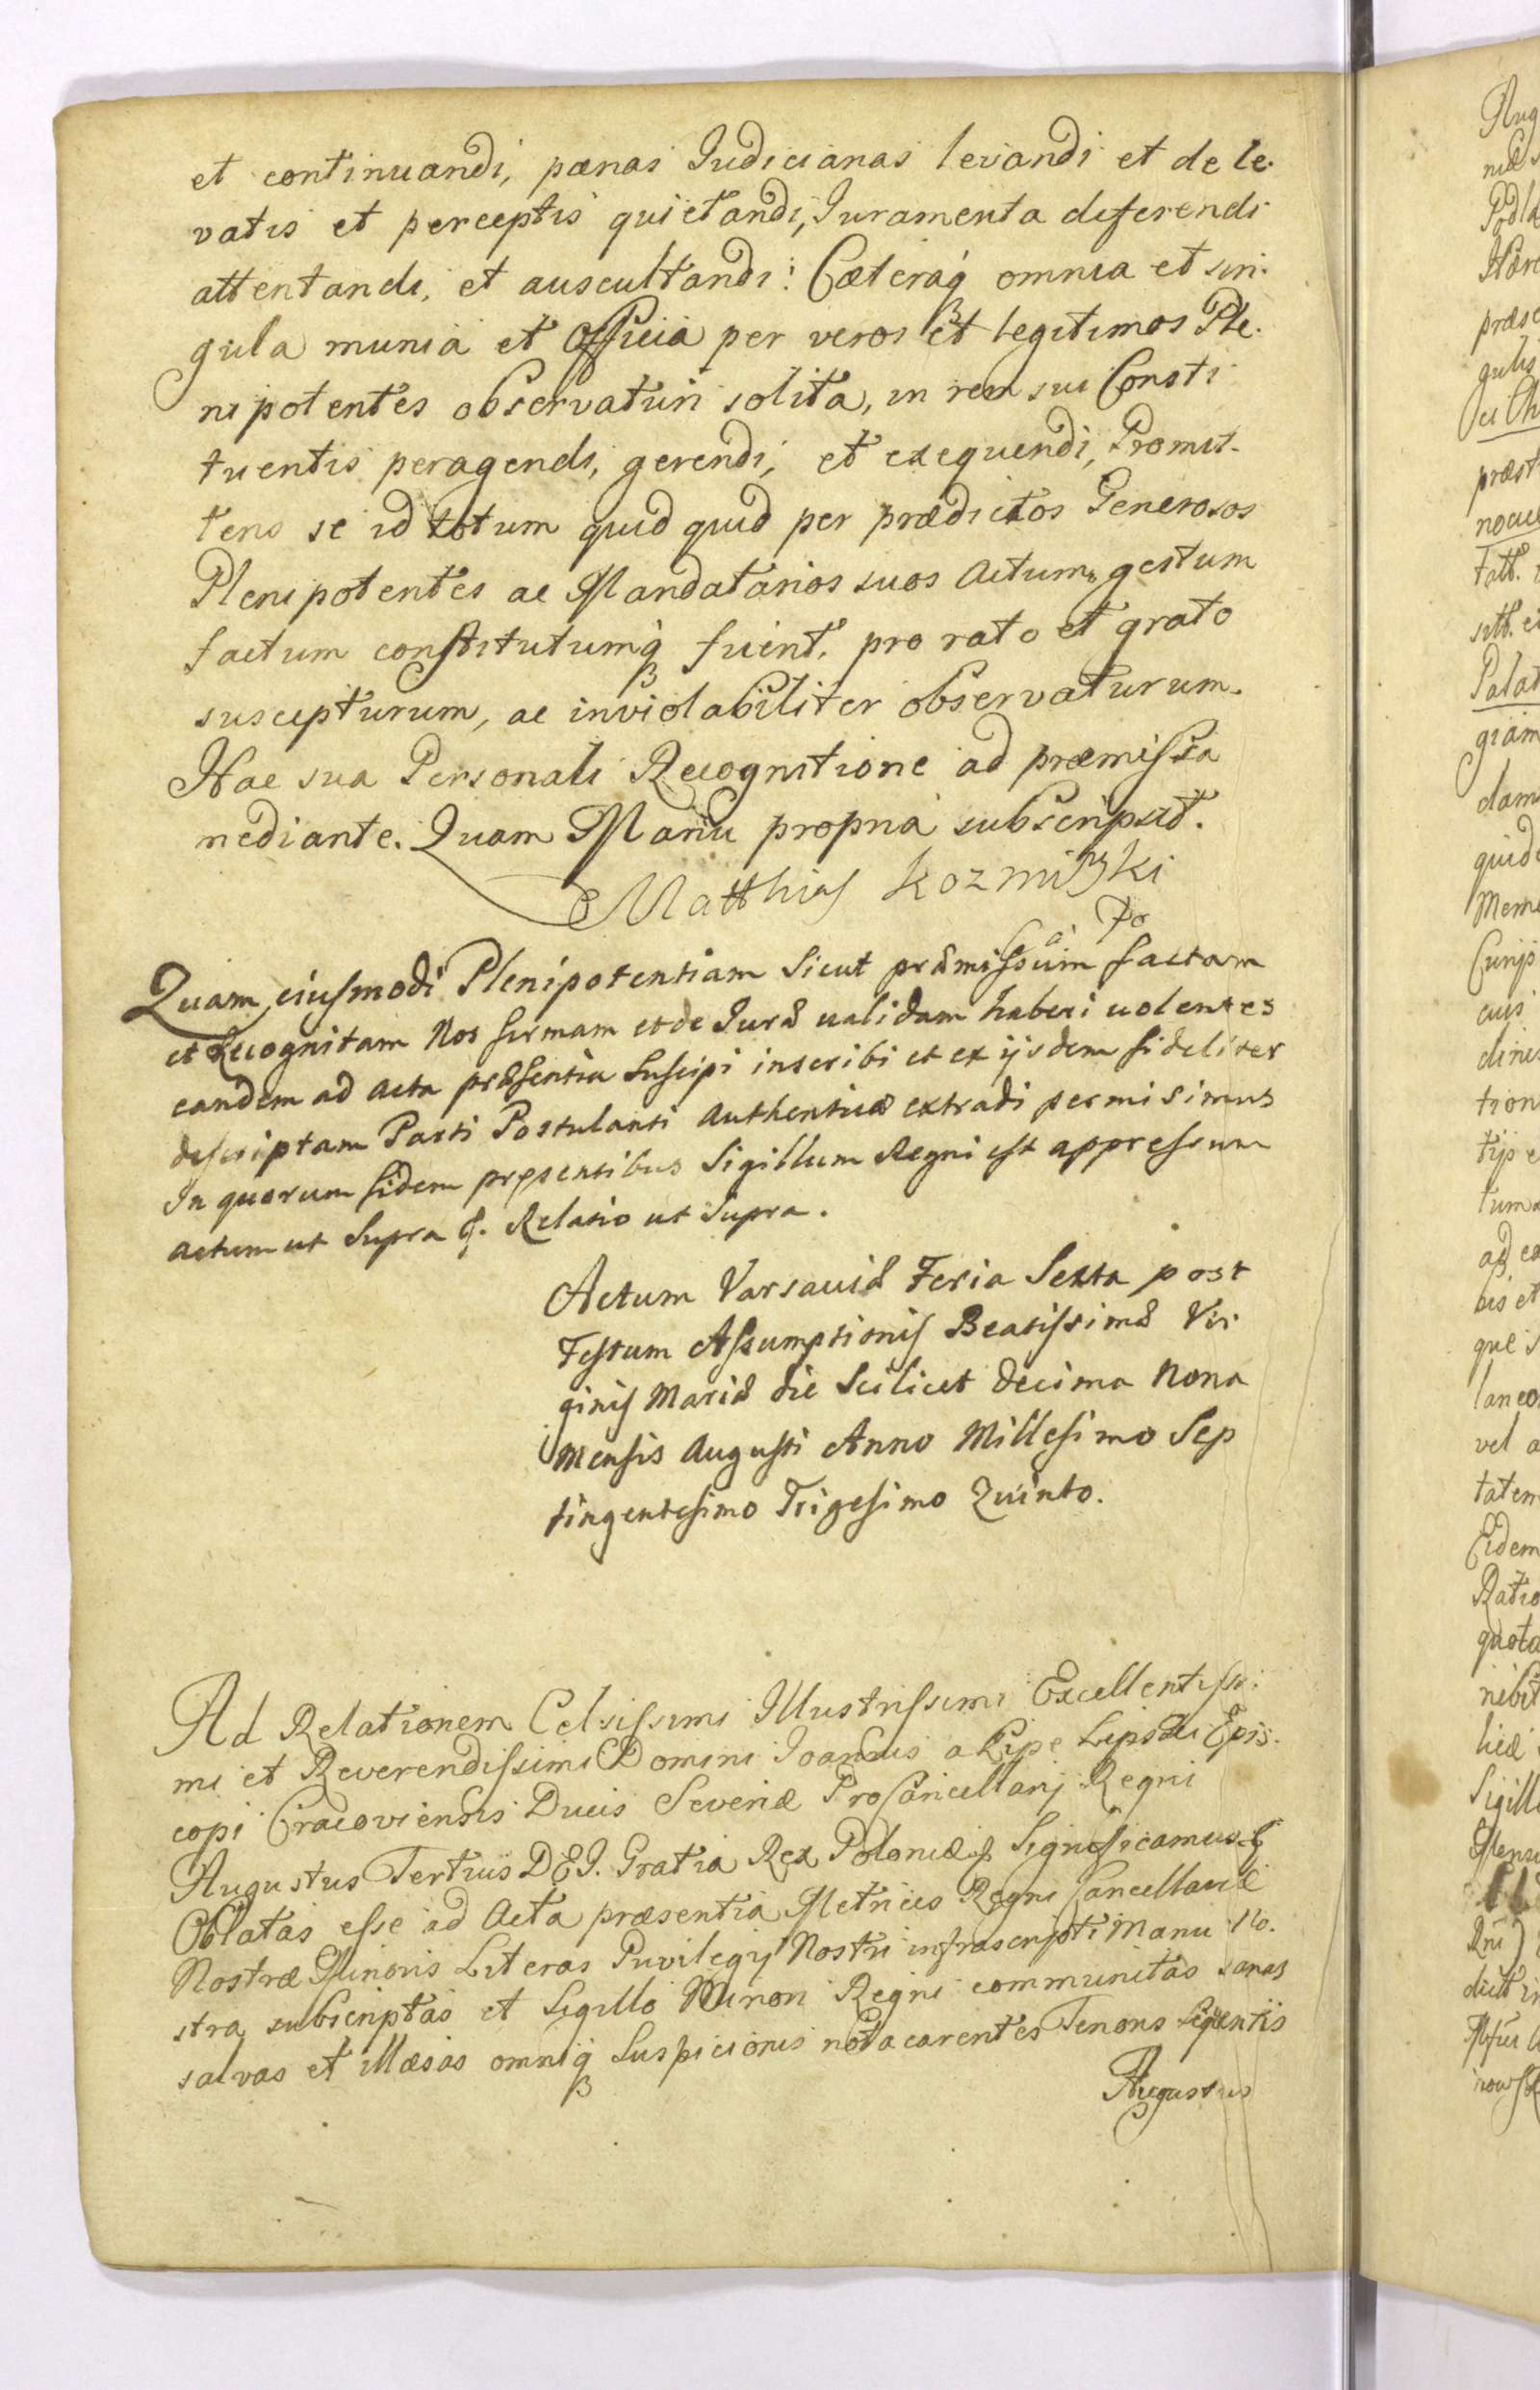 et continuandi, pænas Judicianas levandi et de le-
vatis et perceptis quietandi, Juramenta deferendi
attentandi, et auscultandi: Cæteraq omnia et sin-
gula munia et Officia per veros et legitimos Ple-
nipotentes observaturi solita, in rem sui Consti
tuentis peragendi, gerendi, et exequendi, Promit-
tens se id totum quid quid per prædictos Generosos
Plenipotentes ac Mandatarios suos actum, gestum
factum constitutumq fuerit, pro rato et grato
suscepturum, ac inviolabiliter observaturum.
Hac sua Personali Recognitione ad præmissa
mediante. Quam Manu propria subscripsit.
Matthias Kozminski
Quam eiusmodi Plenipotentiam Sicut præmissum factam
et Recognitam Nos firmam et de Juræ ualidam haberi uolentes
eandem ad Acta præsentia Suscipi inscribi et ex ijsdem fideliter
descriptam Parti Postulanti Authenticæ extradi permisimus
In quorum fidem præsentibus Sigillum Regni est appressum
Actum ut Supra Relatio ut Supra.
Actum Varsauiæ Feria Sexta post
Festum Assumptionis Beatissimæ Vir
ginis Mariæ die Scilicet decima Nona
Mensis Augusti Anno Millesimo Sep
tingentesimo Trigesimo Quinto.
Ad Relationem Celsissimi Illustrissimi Excellentissi-
mi et Reverendissimi Domini Joannis a Lipe Lipski Epis-
copi Cracoviensis Ducis Severiæ ProCancellarij Regni
Augustus Tertius DEI. Gratia Rex Poloniæ Significamus
Oblatas esse ad Acta præsentia Metrices Regni Cancellariæ
Nostræ Minoris Literas Privilegij Nostri infrascripti Manu No-
stra subscriptas et Sigillo Minori Regni communitas sanas
salvas et illæsas omniq Suspicionis nota carentes Tenoris Sequentis
Augustus